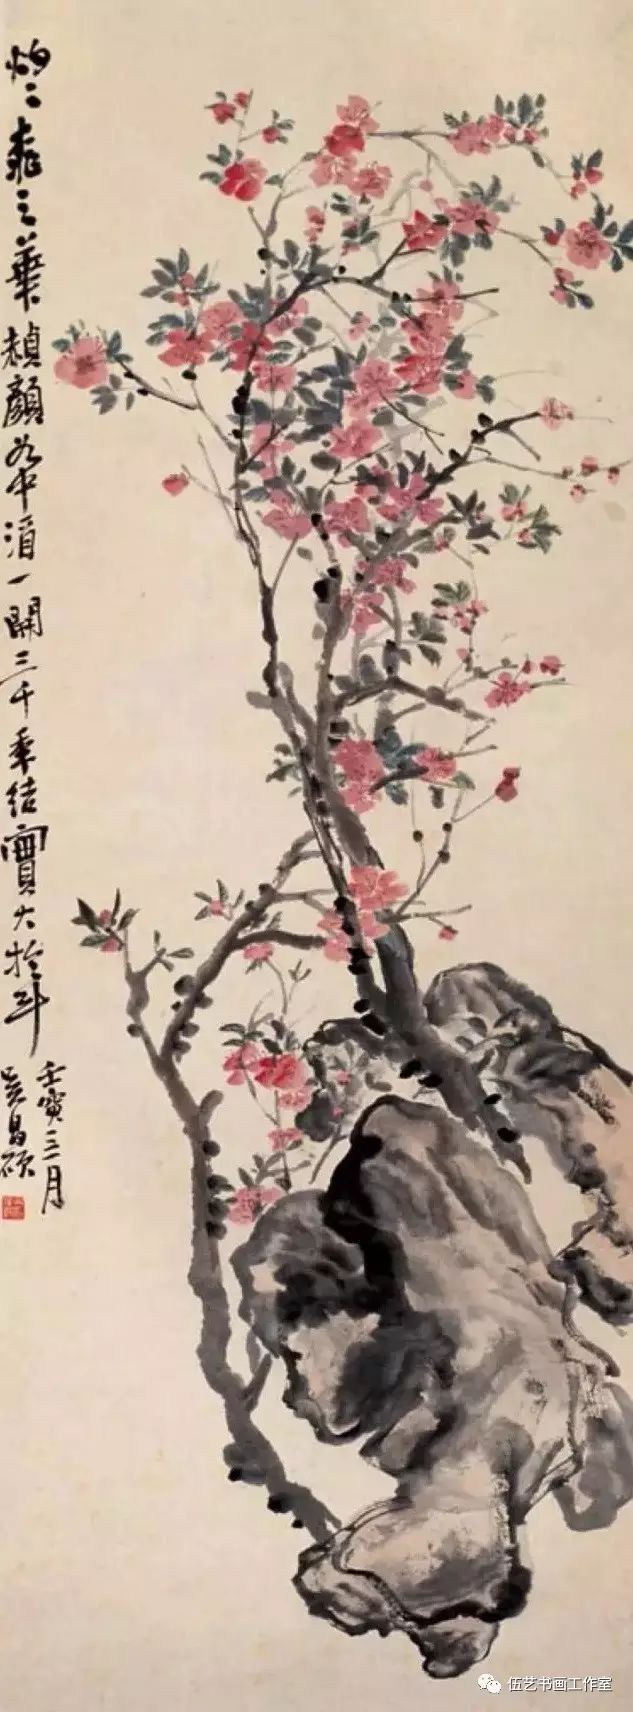 灼二桃之華赬顏如中酒一開三千年結實大於斗
壬寅三月
吳昌碩
伍艺书画工作室